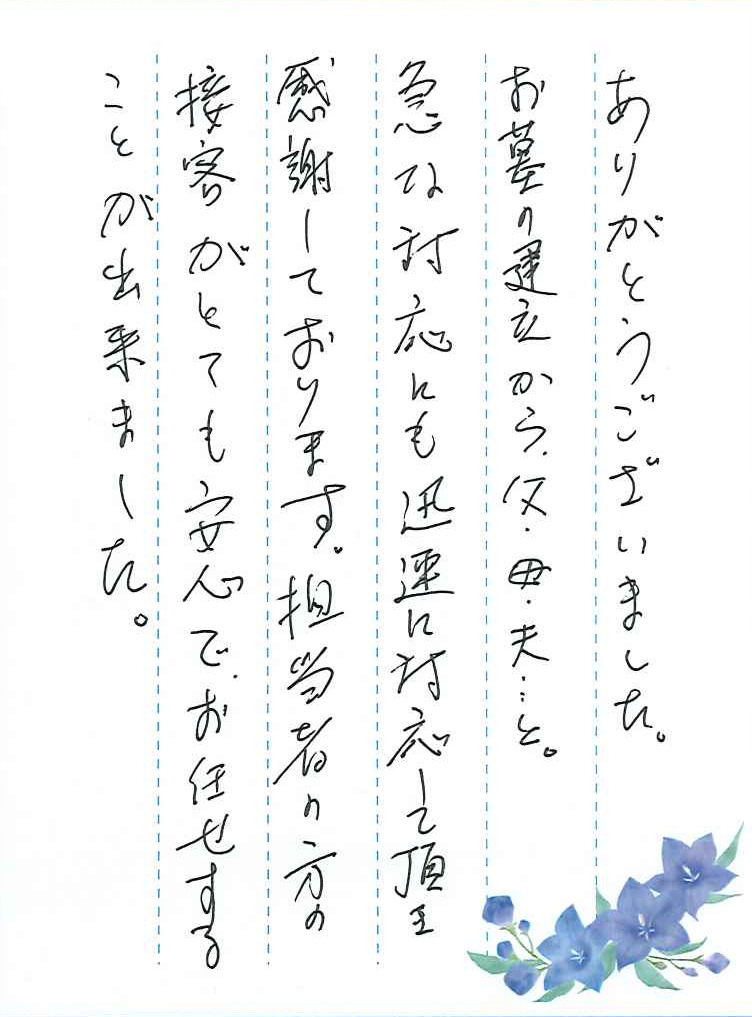 ありがとうございました。
お墓の建立から、父・母・夫…と。
急な対応にも迅速に対応して頂き
感謝しております。担当者の方の
接客がとても安心で、お任せする
ことが出来ました。